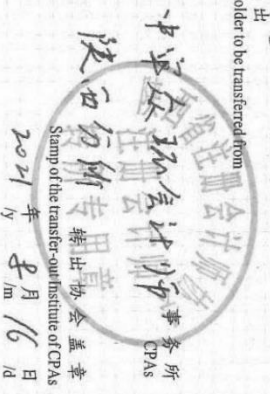 出
older to be transferred from
中审众环会计师 事务所
CPAs
陕西分所
转出协会盖章
Stamp of the transfer-out Institute of CPAs
2021 年 月 16 日
/y /m /d
注册会计师
专用章